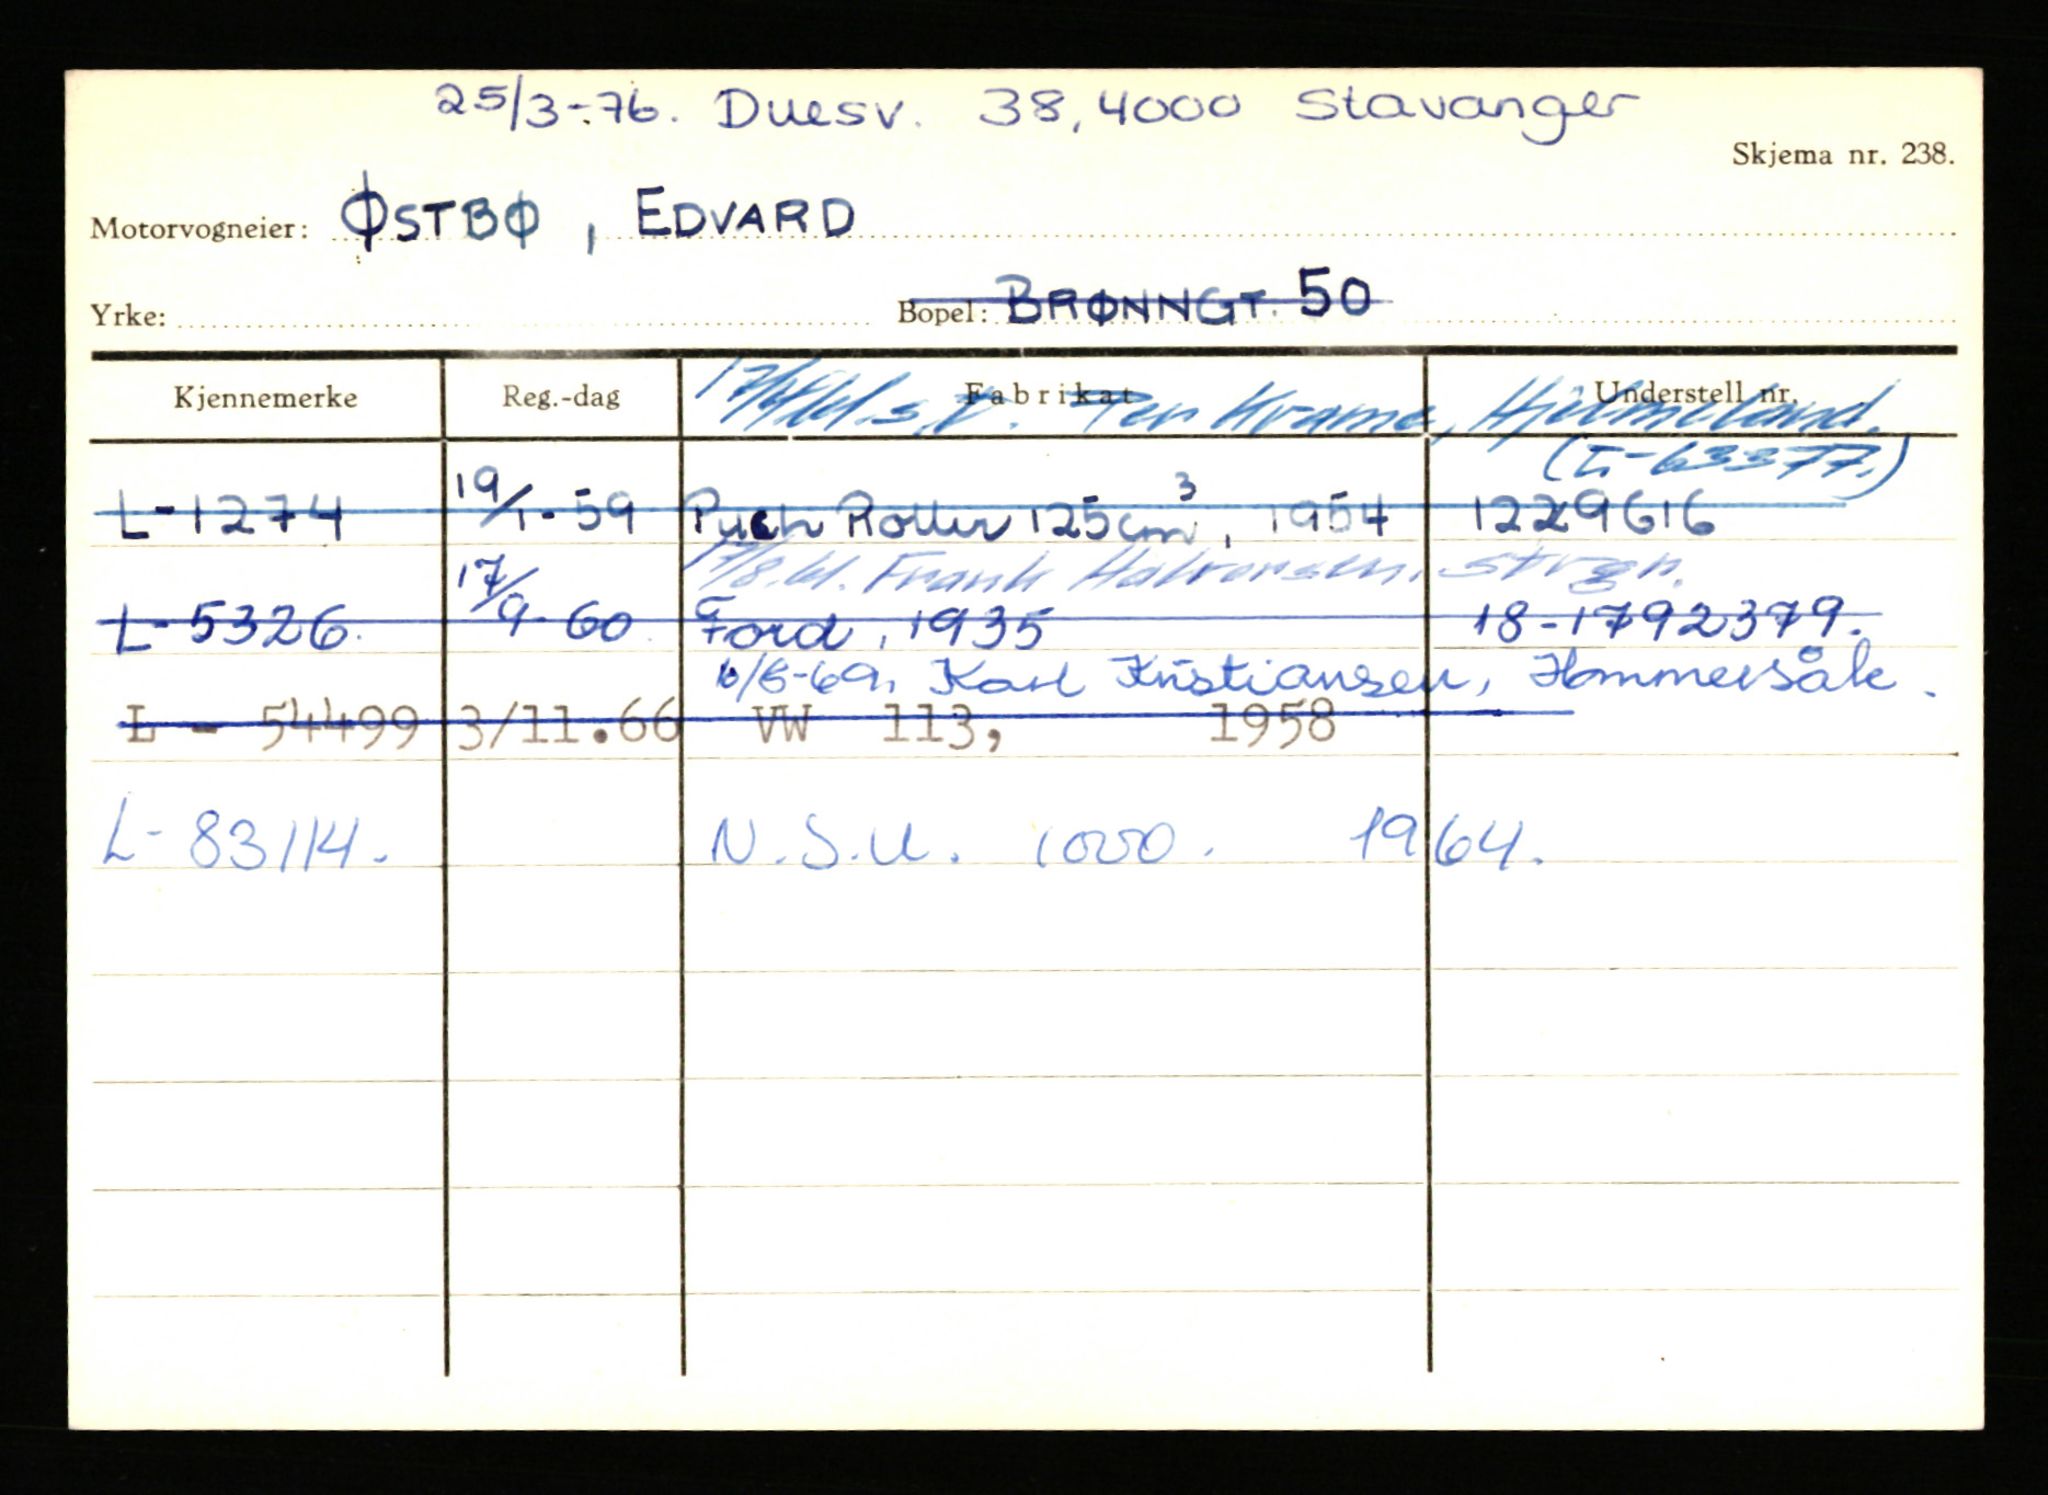 25/3-76. Duesv. 38, 4000 Stavanger
Skjema nr. 238.
Motorvogneier: ØSTBØ, EDVARD
Yrke: Bopel: BRØNNGT. 50
Kjennemerke Reg.-dag Fabrikat Understell nr.
Per Kvame, Hjelmeland.
(L-63377.)
L-1274 19/1-59 Puch Roller 125 cm³, 1954 1229616
Frank Halvorsen, Stvgr.
L-5326. 17/9-60 Ford, 1935 18-1792379.
Karl Kristiansen, Hommersåk.
L - 54499 3/11.66 VW 113, 1958
L-83114. N.S.U. 1000. 1964.